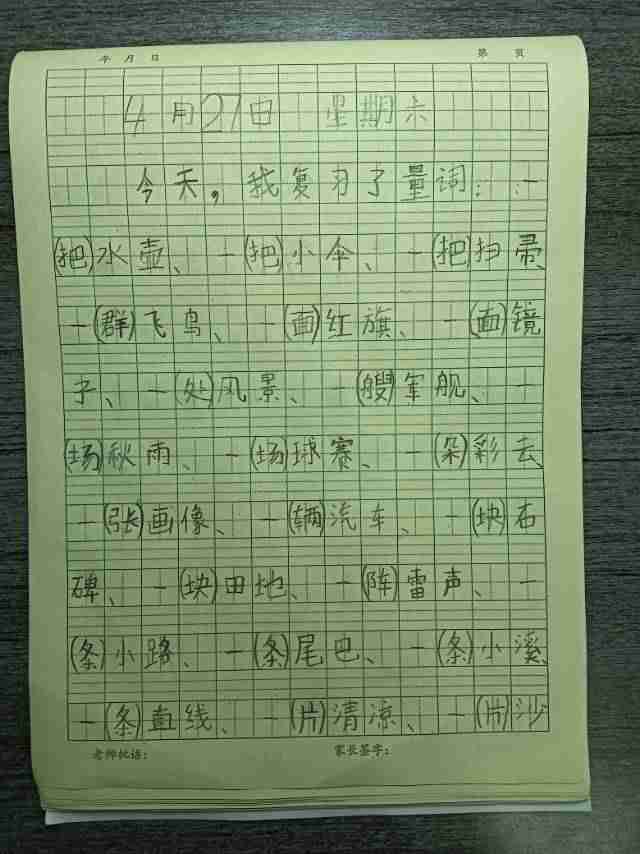 年 月 日 第 页
4月27日 星期六
今天，我复习了量词：一
(把)水壶、一(把)小伞、一(把)扫帚、
一(群)飞鸟、一(面)红旗、一(面)镜
子、一(处)风景、一(艘)军舰、一
(场)秋雨、一(场)球赛、一(朵)彩云
一(张)画像、一(辆)汽车、一(块)石
碑、一(块)田地、一(阵)雷声、一
(条)小路、一(条)尾巴、一(条)小溪、
一(条)直线、一(片)清凉、一(片)沙
老师批语： 家长签字：